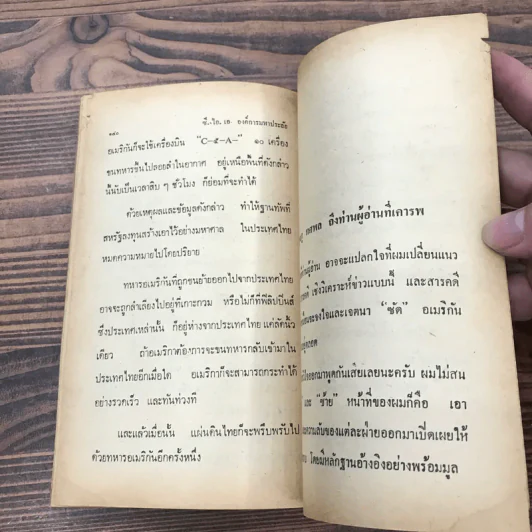 ๑๘๐
ซี.ไอ.เอ. องค์การมหาประลัย
อเมริกันก็จะใช้เครื่องบิน "C-๕-A-" ๑๐ เครื่อง
ขนทหารขึ้นไปลอยลำในอากาศ อยู่เหนือพื้นที่ดังกล่าว
นี้นับเป็นเวลาสิบ ๆ ชั่วโมง ก็ย่อมที่จะทำได้
ด้วยเหตุผลและข้อมูลดังกล่าว ทำให้ฐานทัพที่
สหรัฐลงทุนสร้างเอาไว้อย่างมหาศาล ในประเทศไทย
หมดความหมายไปโดยปริยาย
ทหารอเมริกันที่ถูกขนย้ายออกไปจากประเทศไทย
อาจจะถูกลำเลียงไปอยู่ที่เกาะกวม หรือไม่ก็ที่ฟิลิปปินส์
ซึ่งประเทศเหล่านั้น ก็อยู่ห่างจากประเทศไทย แค่ลัดนิ้ว
เดียว ถ้าอเมริกาต้องการจะขนทหารกลับเข้ามาใน
ประเทศไทยอีกเมื่อใด อเมริกาก็จะสามารถกระทำได้
อย่างรวดเร็ว และทันท่วงที
และแล้วเมื่อนั้น แผ่นดินไทยก็จะพรึบพรับไป
ด้วยทหารอเมริกันอีกครั้งหนึ่ง
ทศพล ถึงท่านผู้อ่านที่เคารพ
ท่านผู้อ่าน อาจจะแปลกใจที่ผมเปลี่ยนแนว
เชิงวิเคราะห์ข่าวแบบนี้ และสารคดี
จะจงใจและเจตนา "ซัด" อเมริกัน
ออกมาพูดกันเสียเลยนะครับ ผมไม่สน
และ "ซ้าย" หน้าที่ของผมก็คือ เอา
ความลับของแต่ละฝ่ายออกมาเปิดเผยให้
โดยมีหลักฐานอ้างอิงอย่างพร้อมมูล